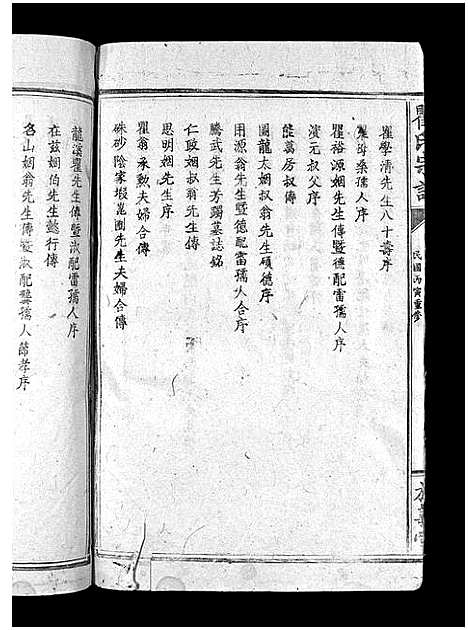 瞿氏宗譜
民國丙寅重修
瞿學清先生八十壽序
瞿母桑孺人序
瞿裕源姻先生傳暨德配雷孺人序
漢元叔父序
能萬房叔傳
圖龍太姻叔翁先生碩德序
用源翁先生暨德配富孺人合序
騰武先生芳躅墓誌銘
仁政姻叔翁先生傳
思明姻先生序
瞿翁承勲夫婦合傳
硃砂陰家塅崑圃先生夫婦合傳
龍溪瞿先生傳暨淑配雷孺人序
在茲姻伯先生懿行傳
名山姻翁先生傳暨淑配龔孺人節孝序